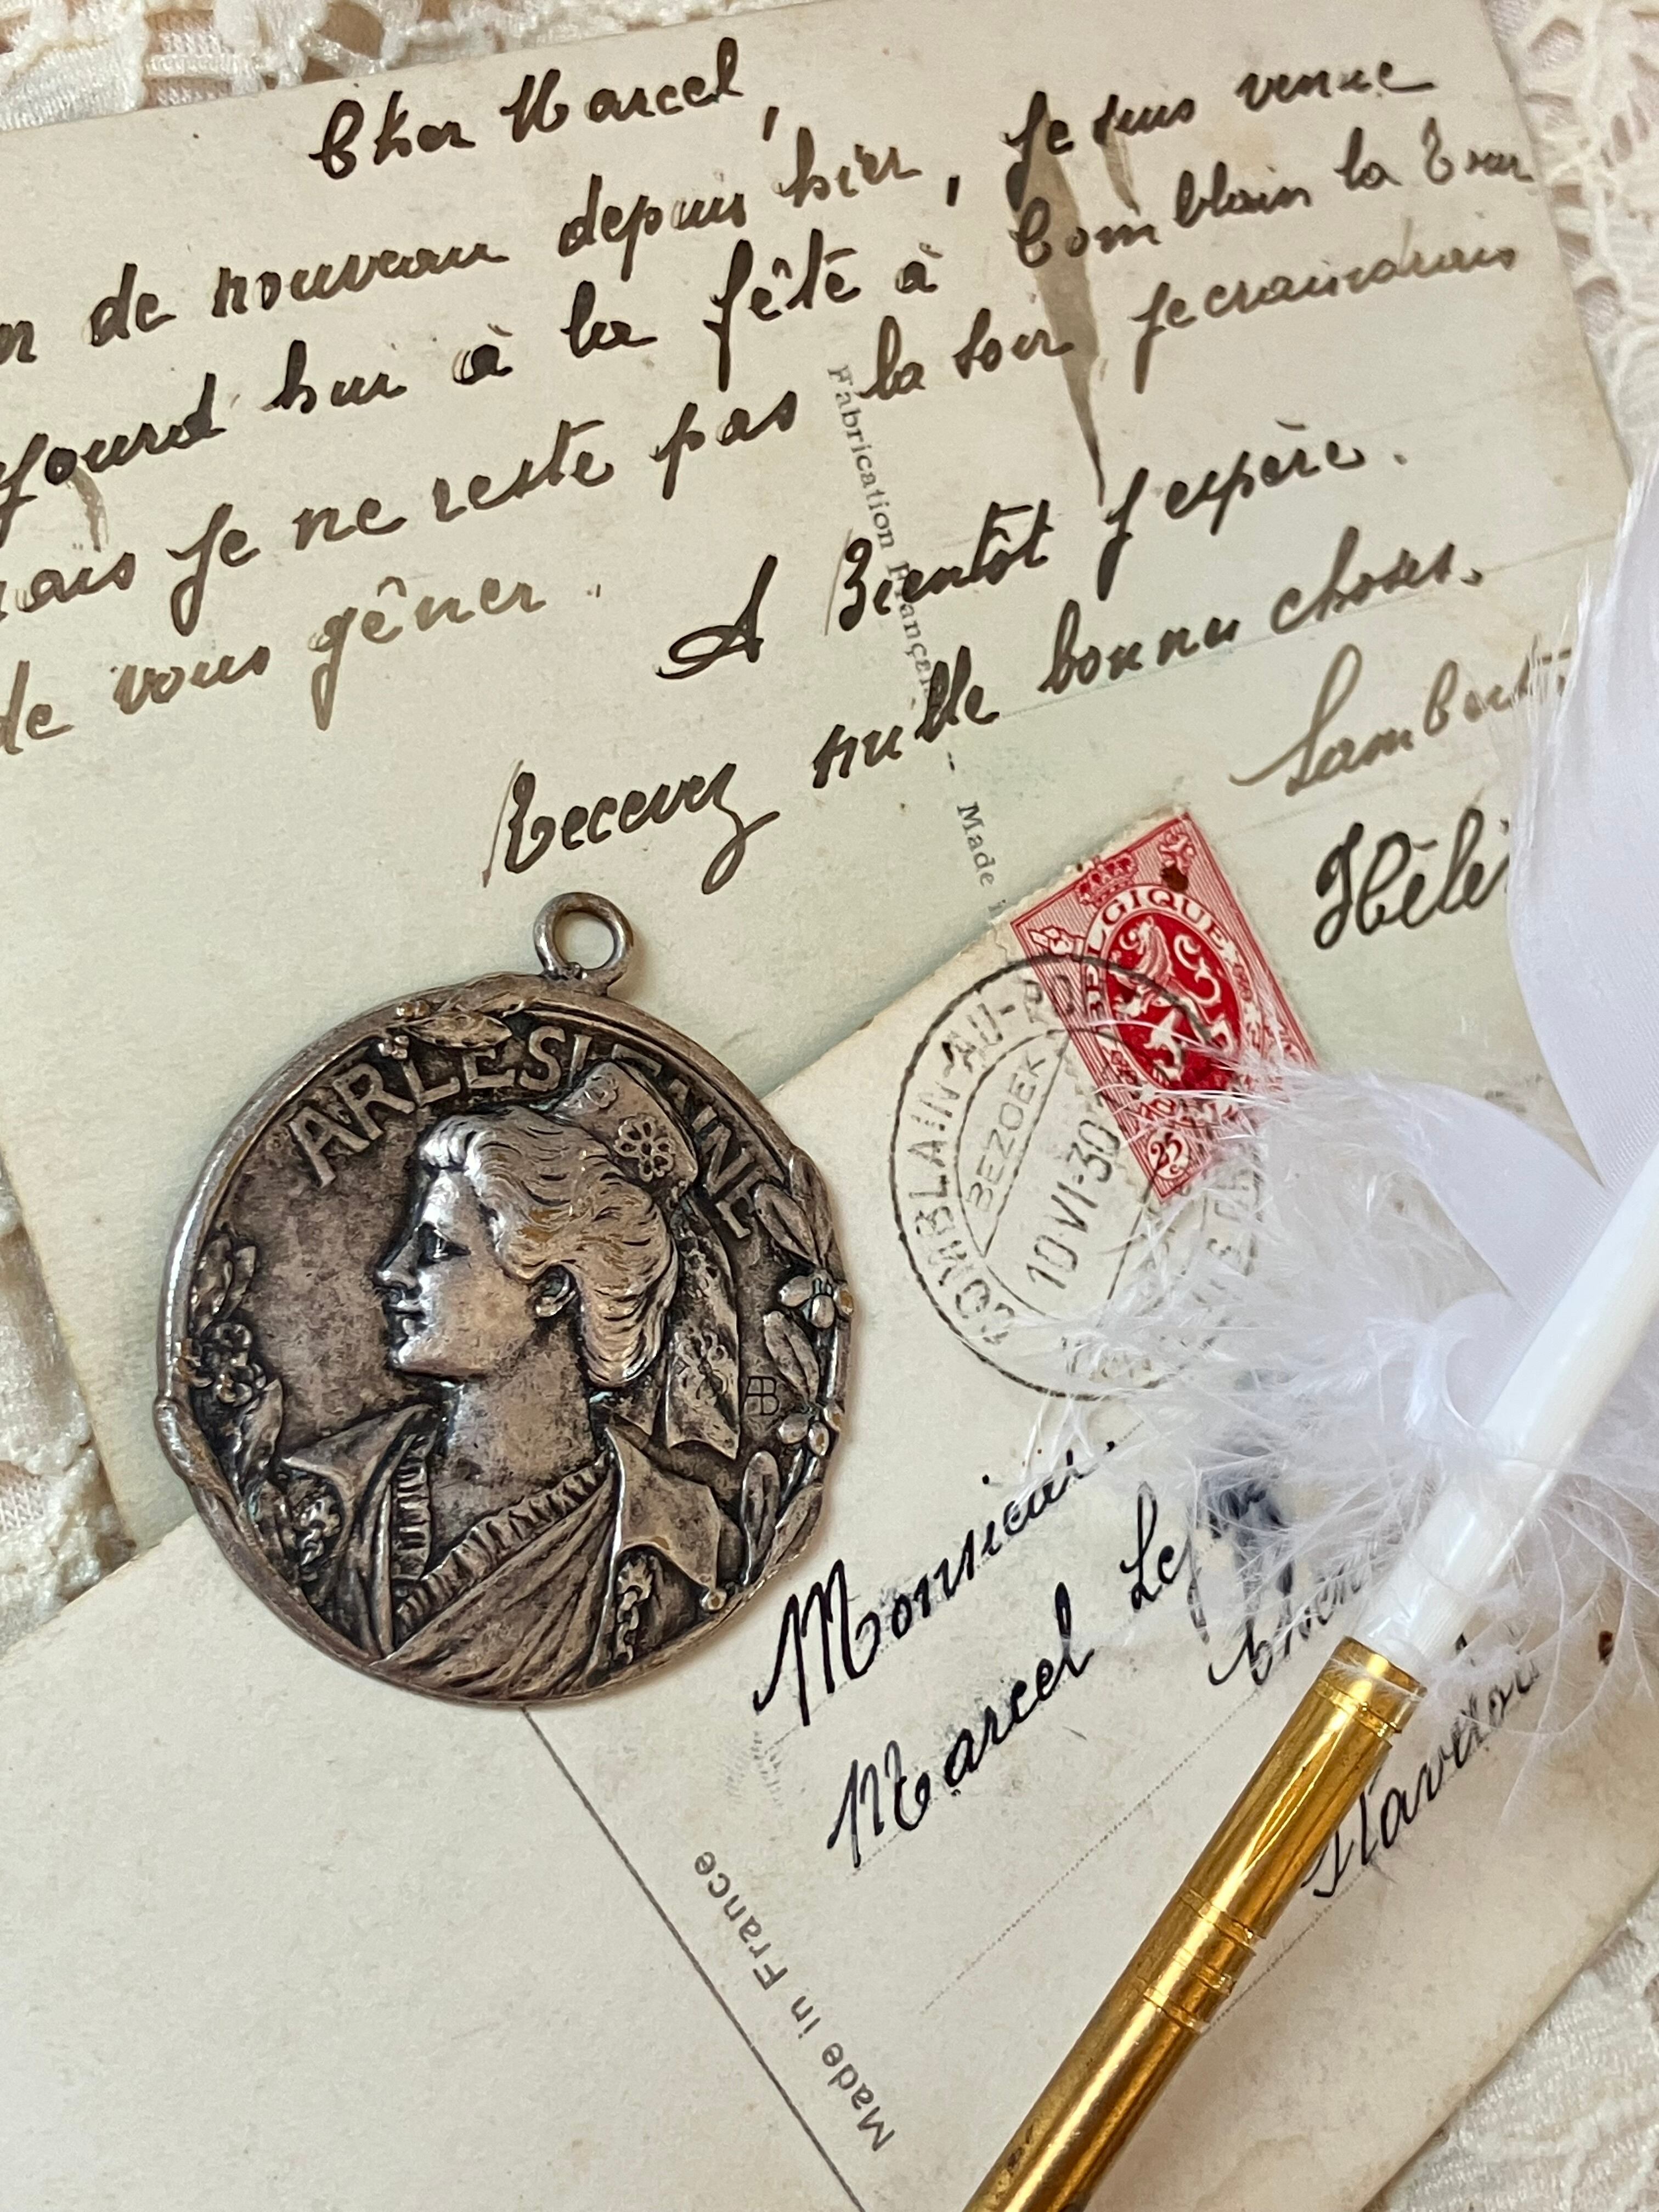 Cher Marcel,
de nouveau depuis hier, je suis venue
jourd'hui à la fête à Comblain la Tour
ais je ne reste pas la soir je craindrais
de vous gêner.
A Bientôt j'espère.
Recevez mille bonnes choses.
Fabrication Française -- Made
BELGIQUE
25c
COMBLAIN-AU-PO
BEZOEK
10 VI-30
ARLESIENNE
AB
Monsieur
Marcel
Made in France